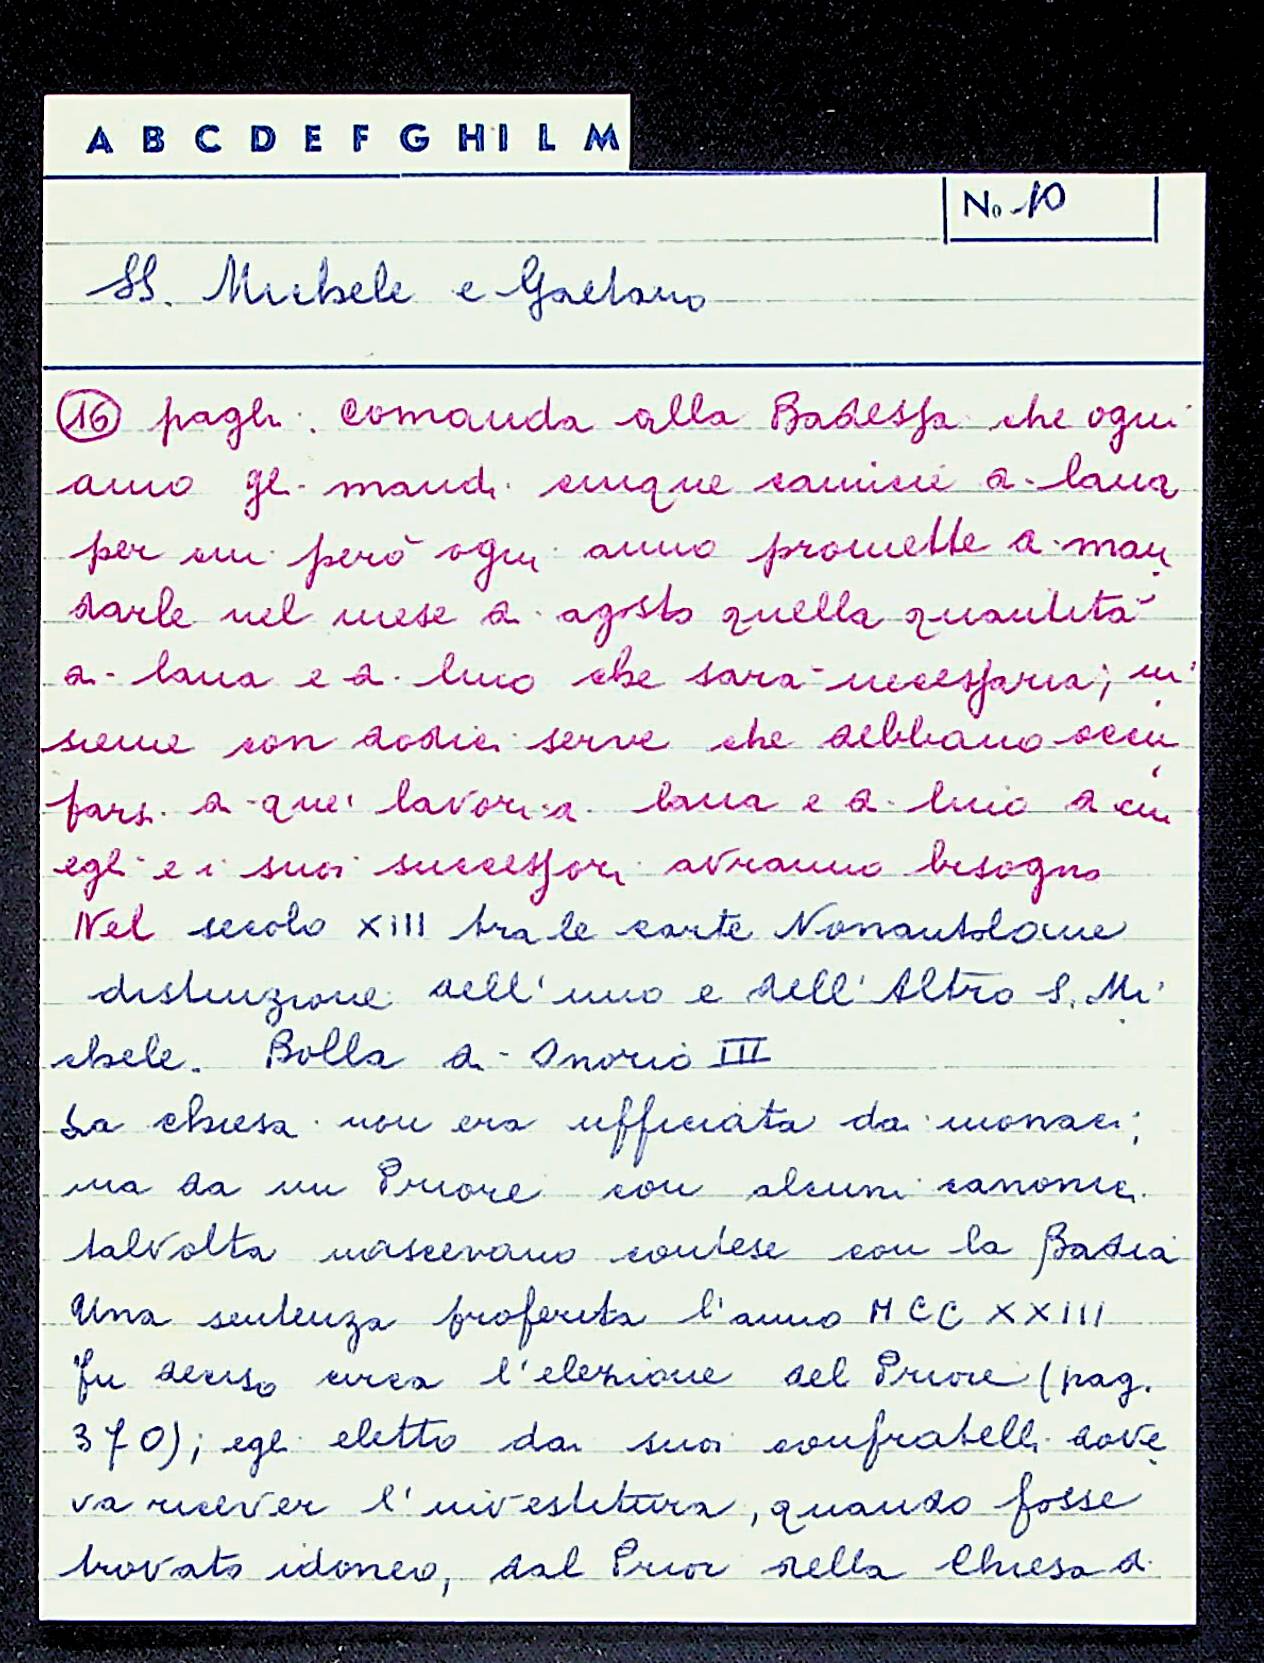 A B C D E F G H I L M
No 10
SS. Michele e Gaetano
16 pagli. Comanda alla Badessa che ogni
anno gli mandi cinque camicie di lana
per cui però ogni anno promette di man
darle nel mese di agosto quella quantità
di lana e di lino che sarà necessaria; in
sieme con dodici serve che debbano occu
parsi di quei lavori di lana e di lino di cui
egli e i suoi successori avranno bisogno
Nel secolo XIII tra le carte Nonantolane
distinzione dell'uno e dell'Altro S. Mi
chele. Bolla di Onorio III
La chiesa non era ufficiata dai monaci;
ma da un Priore con alcuni canonici.
talvolta nascevano contese con la Badia
Una sentenza proferita l'anno MCCXXIII
fu deciso circa l'elezione del Priore (pag.
370); egli eletto dai suoi confratelli dove
va ricever l'investitura, quando fosse
trovato idoneo, dal Prior della Chiesa di